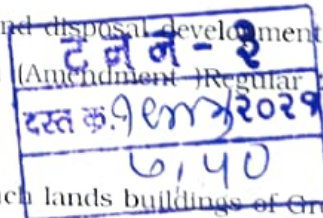 nd disposal development
ट न न - २
(Amendment )Regular
दस्त क. २०२१
७/५०
ch lands buildings of Gr